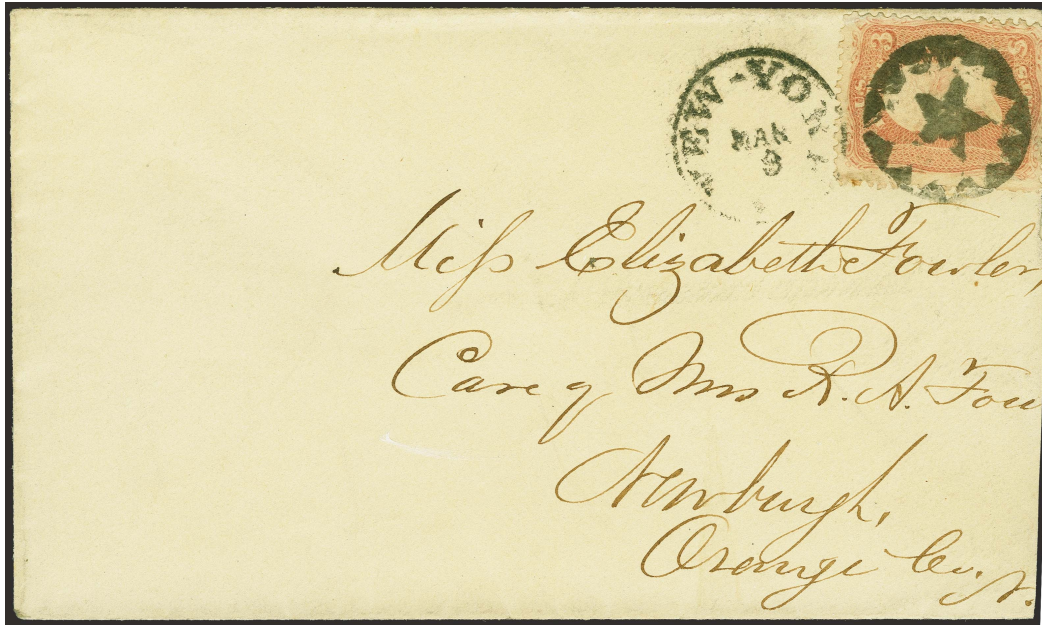 NEW-YORK
MAR
9
3
U.S.
Miss Elizabeth Fowler,
Care of Mrs R. A. Fow
Newburgh,
Orange Co.